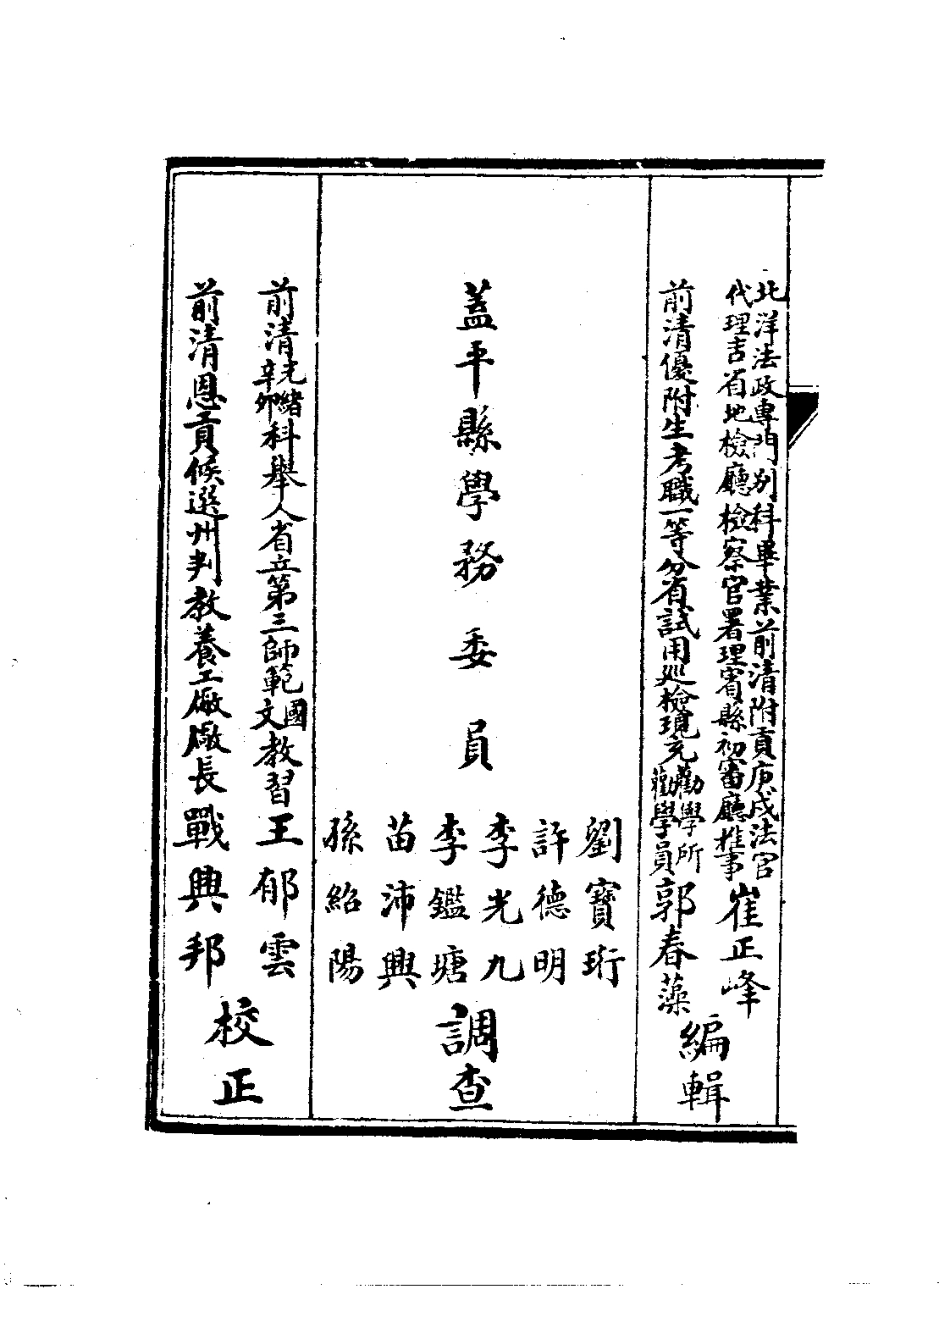 北洋法政專門別科畢業前清附貢庚戌法官
代理吉省地檢廳檢察官署理賓縣初審廳推事
崔正峰
前清優附生考職一等分省試用巡檢現充勸學所
勸學員郭春藻
編輯
蓋平縣學務委員
劉寶珩
許德明
李光九
李鑑塘
苗沛興
孫紹陽
調查
前清光緒辛卯科舉人省立第三師範國文教習王郁雲
前清恩貢候選州判教養工廠廠長戰興邦
校正